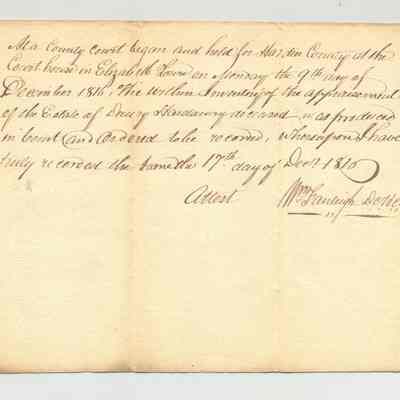 At a County court began and held for Hardin County at the
Court house in Elizabeth Town on Monday the 9th day of
December 1816, The within Inventory of the appraisement
of the Estate of Drury Hardaway deceased was produced
in Court and ordered to be recorded, whereupon I have
truly recorded the same the 17th day of Decr 1816
Attest